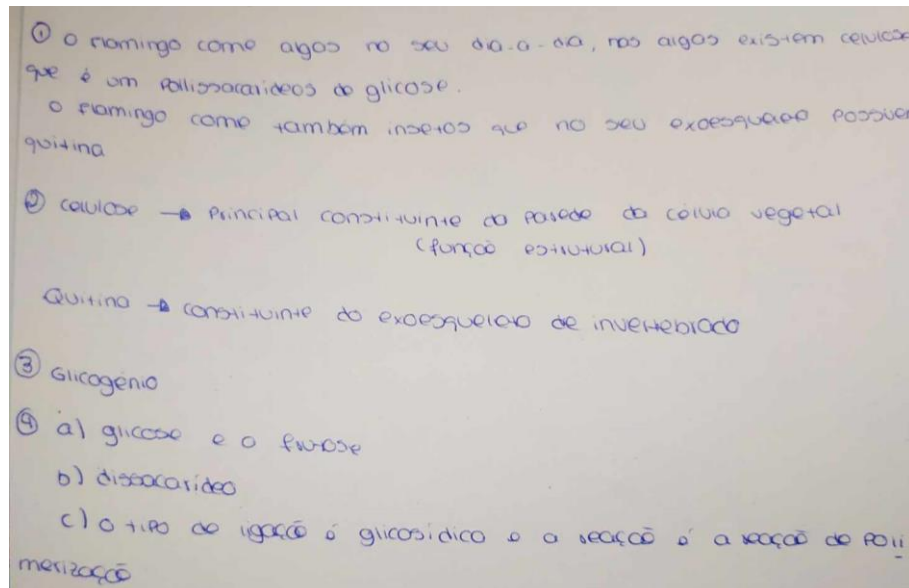 ① O flamingo come algas no seu dia-a-dia, nas algas existem celulose
que é um polissacarideos do glicose.
O flamingo come também insetos que no seu exoesqueleto possuem
quitina
② celulose → Principal constituinte da parede da célula vegetal
(função estrutural)
Quitina → constituinte do exoesqueleto de invertebrado
③ Glicogénio
④ a) glicose e a frutose
b) dissacarídeo
c) O tipo de ligação é glicosídico e a reação é a reação de poli
merização